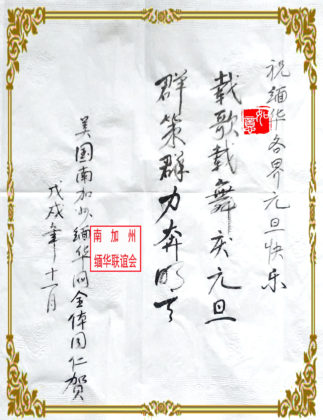 祝缅华各界元旦快乐
如意
载歌载舞庆元旦
群策群力奔明天
美国南加州缅华网全体同仁贺
戊戌年十一月
南加州
缅华联谊会